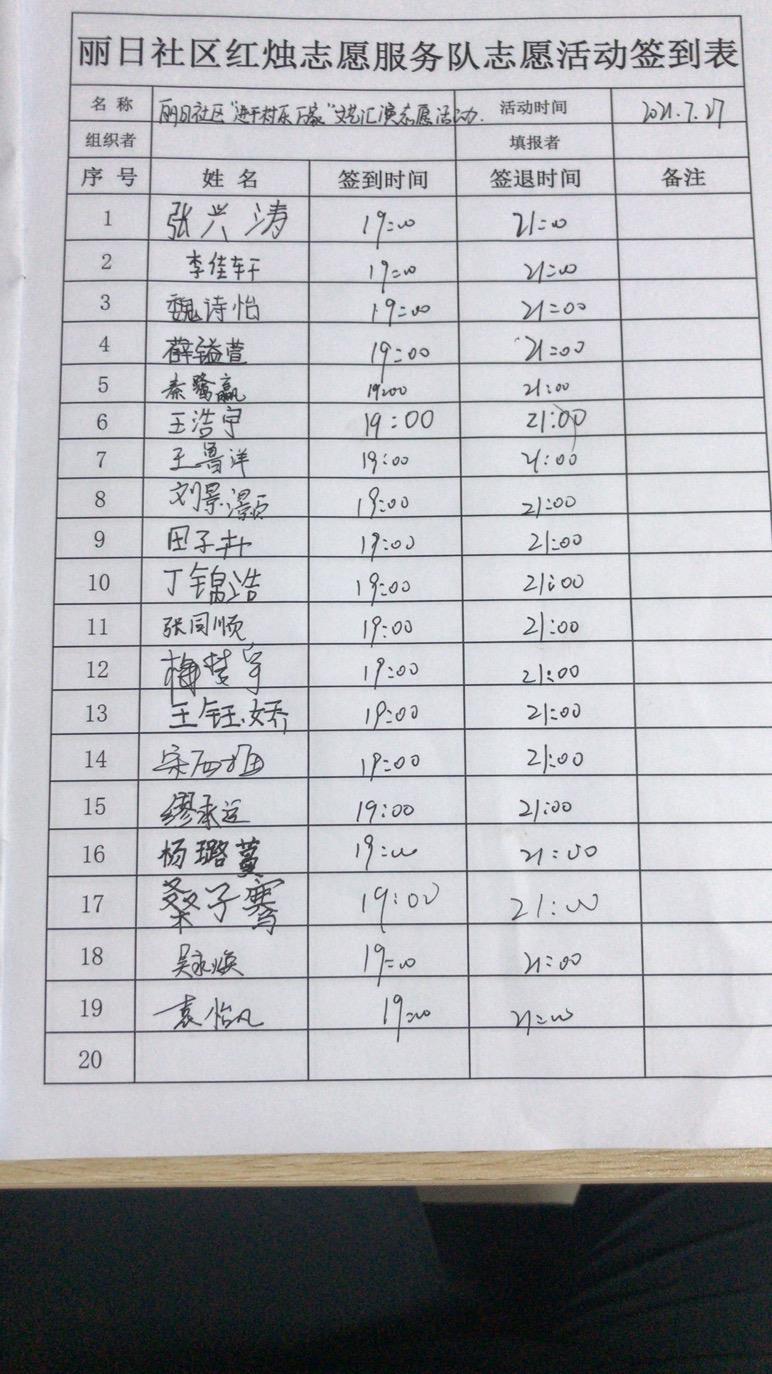 丽日社区红烛志愿服务队志愿活动签到表
名 称 丽日社区“进千村乐万家”文艺汇演志愿活动. 活动时间 2021.7.27
组织者 填报者
序 号 姓 名 签到时间 签退时间 备注
1 张兴涛 19:00 21:00
2 李佳轩 19:00 21:00
3 魏诗怡 19:00 21:00
4 薛镒萱 19:00 21:00
5 秦鹭赢 19:00 21:00
6 王浩宇 19:00 21:00
7 王鲁洋 19:00 21:00
8 刘景灏 19:00 21:00
9 田子卉 19:00 21:00
10 丁锦浩 19:00 21:00
11 张同顺 19:00 21:00
12 梅梦宇 19:00 21:00
13 王钰娇 19:00 21:00
14 19:00 21:00
15 缪承运 19:00 21:00
16 杨璐萱 19:00 21:00
17 桑子骞 19:00 21:00
18 吴永焕 19:00 21:00
19 袁怡凡 19:00 21:00
20